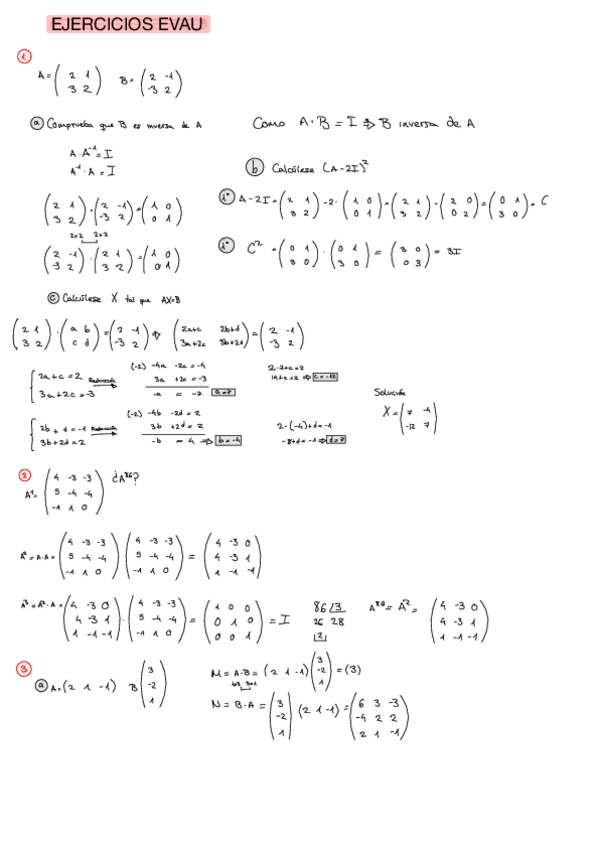 EJERCICIOS EVAU
1
A = ( 2 1 ; 3 2 ) B = ( 2 -1 ; -3 2 )
a Comprueba que B es inversa de A
Como A · B = I ⇒ B inversa de A
A · A⁻¹ = I
A⁻¹ · A = I
( 2 1 ; 3 2 ) · ( 2 -1 ; -3 2 ) = ( 1 0 ; 0 1 )
2x2 2x2
( 2 -1 ; -3 2 ) · ( 2 1 ; 3 2 ) = ( 1 0 ; 0 1 )
b Calcúlese (A - 2I)²
1º A - 2I = ( 2 1 ; 3 2 ) - 2 · ( 1 0 ; 0 1 ) = ( 2 1 ; 3 2 ) - ( 2 0 ; 0 2 ) = ( 0 1 ; 3 0 ) = C
1º C² = ( 0 1 ; 3 0 ) · ( 0 1 ; 3 0 ) = ( 3 0 ; 0 3 ) = 3I
c Calcúlese X tal que AX=B
( 2 1 ; 3 2 ) · ( a b ; c d ) = ( 2 -1 ; -3 2 ) ⇒ ( 2a+c 2b+d ; 3a+2c 3b+2d ) = ( 2 -1 ; -3 2 )
2a + c = 2
3a + 2c = -3
Reducción
(-2) -4a -2c = -4
3a +2c = -3
-a = -7 a = 7
2·7+c=2
14+c=2 ⇒ c = -12
2b + d = -1
3b + 2d = 2
Reducción
(-2) -4b -2d = 2
3b +2d = 2
-b = 4 ⇒ b = -4
2·(-4)+d=-1
-8+d=-1 ⇒ d=7
Solución
X = ( 7 -4 ; -12 7 )
2
A¹ = ( 4 -3 -3 ; 5 -4 -4 ; -1 1 0 ) ¿A⁸⁶?
A² = A·A = ( 4 -3 -3 ; 5 -4 -4 ; -1 1 0 ) ( 4 -3 -3 ; 5 -4 -4 ; -1 1 0 ) = ( 4 -3 0 ; 4 -3 1 ; 1 -1 -1 )
A³ = A²·A = ( 4 -3 0 ; 4 -3 1 ; 1 -1 -1 ) · ( 4 -3 -3 ; 5 -4 -4 ; -1 1 0 ) = ( 1 0 0 ; 0 1 0 ; 0 0 1 ) = I
86 | 3
26 28
2
A⁸⁶ = A² = ( 4 -3 0 ; 4 -3 1 ; 1 -1 -1 )
3
a A = ( 2 1 -1 ) B ( 3 ; -2 ; 1 )
M = A·B = ( 2 1 -1 ) ( 3 ; -2 ; 1 ) = (3)
N = B·A = ( 3 ; -2 ; 1 ) ( 2 1 -1 ) = ( 6 3 -3 ; -4 2 2 ; 2 1 -1 )